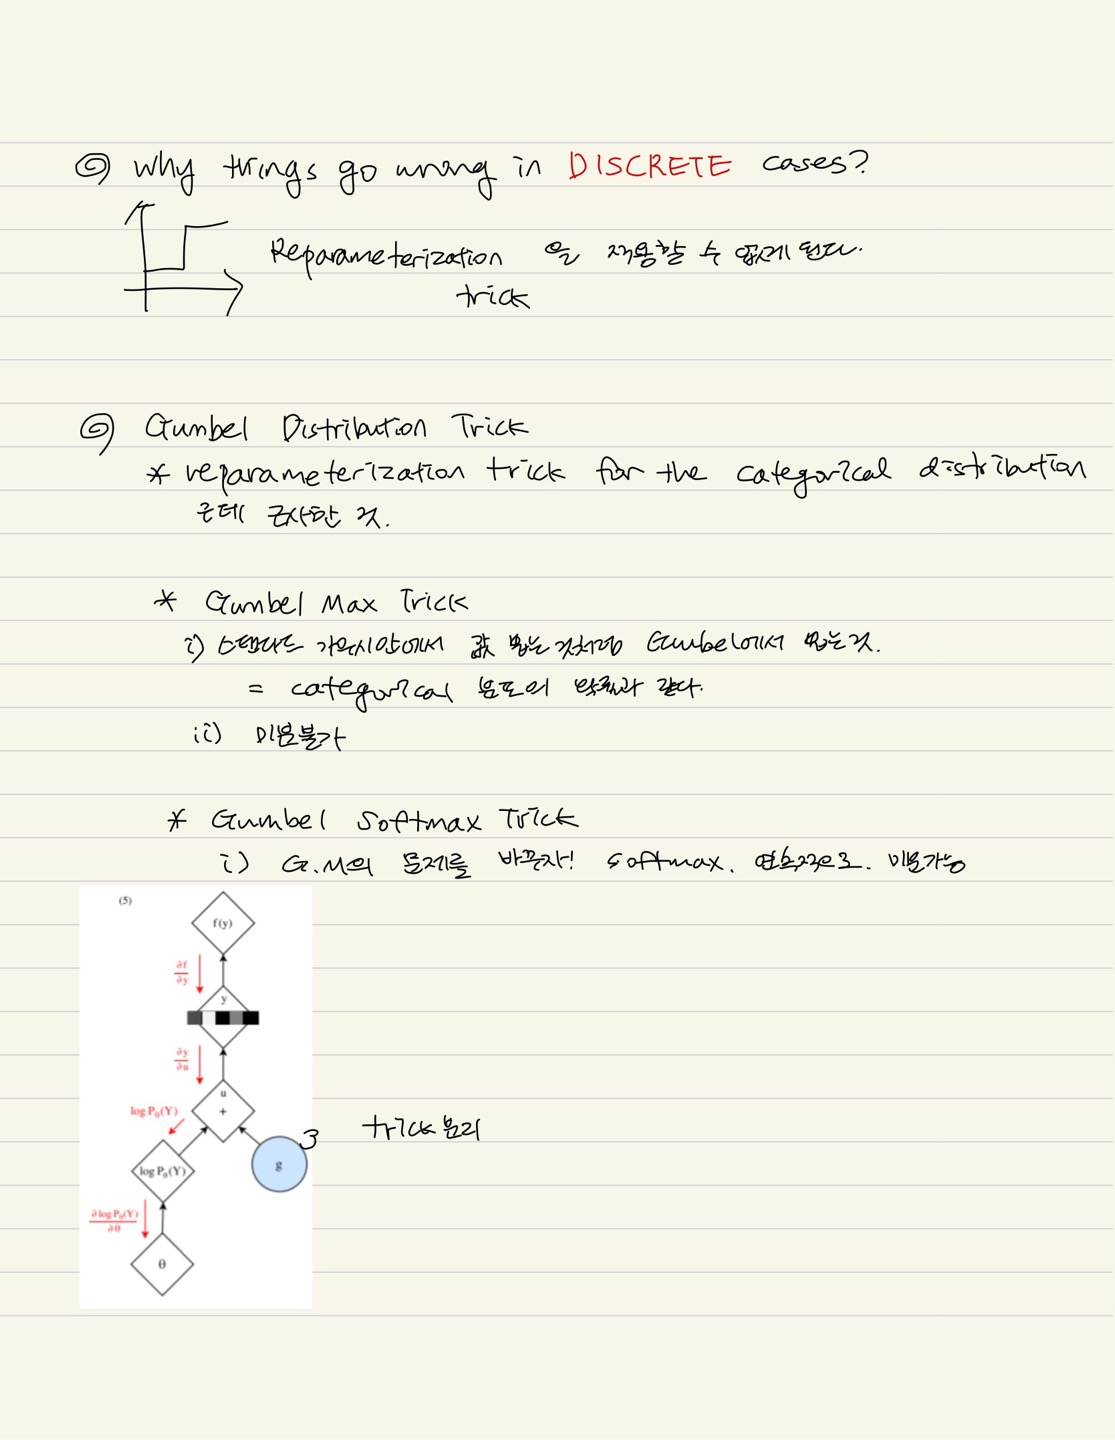 why things go wrong in DISCRETE cases?
Reparameterization 을 적용할 수 없게 된다.
trick
Gumbel Distribution Trick
* reparameterization trick for the categorical distribution
근데 근사한 것.
* Gumbel Max Trick
i) 스탠다드 가우시안에서 값 뽑는 것처럼 Gumbel에서 뽑는 것.
= categorical 분포의 확률과 같다.
ii) 미분불가
* Gumbel Softmax Trick
i) G.M의 문제를 바꾸자! softmax. 연속적으로. 미분가능
(5)
f(y)
∂f
∂y
y
∂y
∂u
u
+
log Pθ(Y)
trick 분리
g
log Pθ(Y)
∂ log Pθ(Y)
∂θ
θ